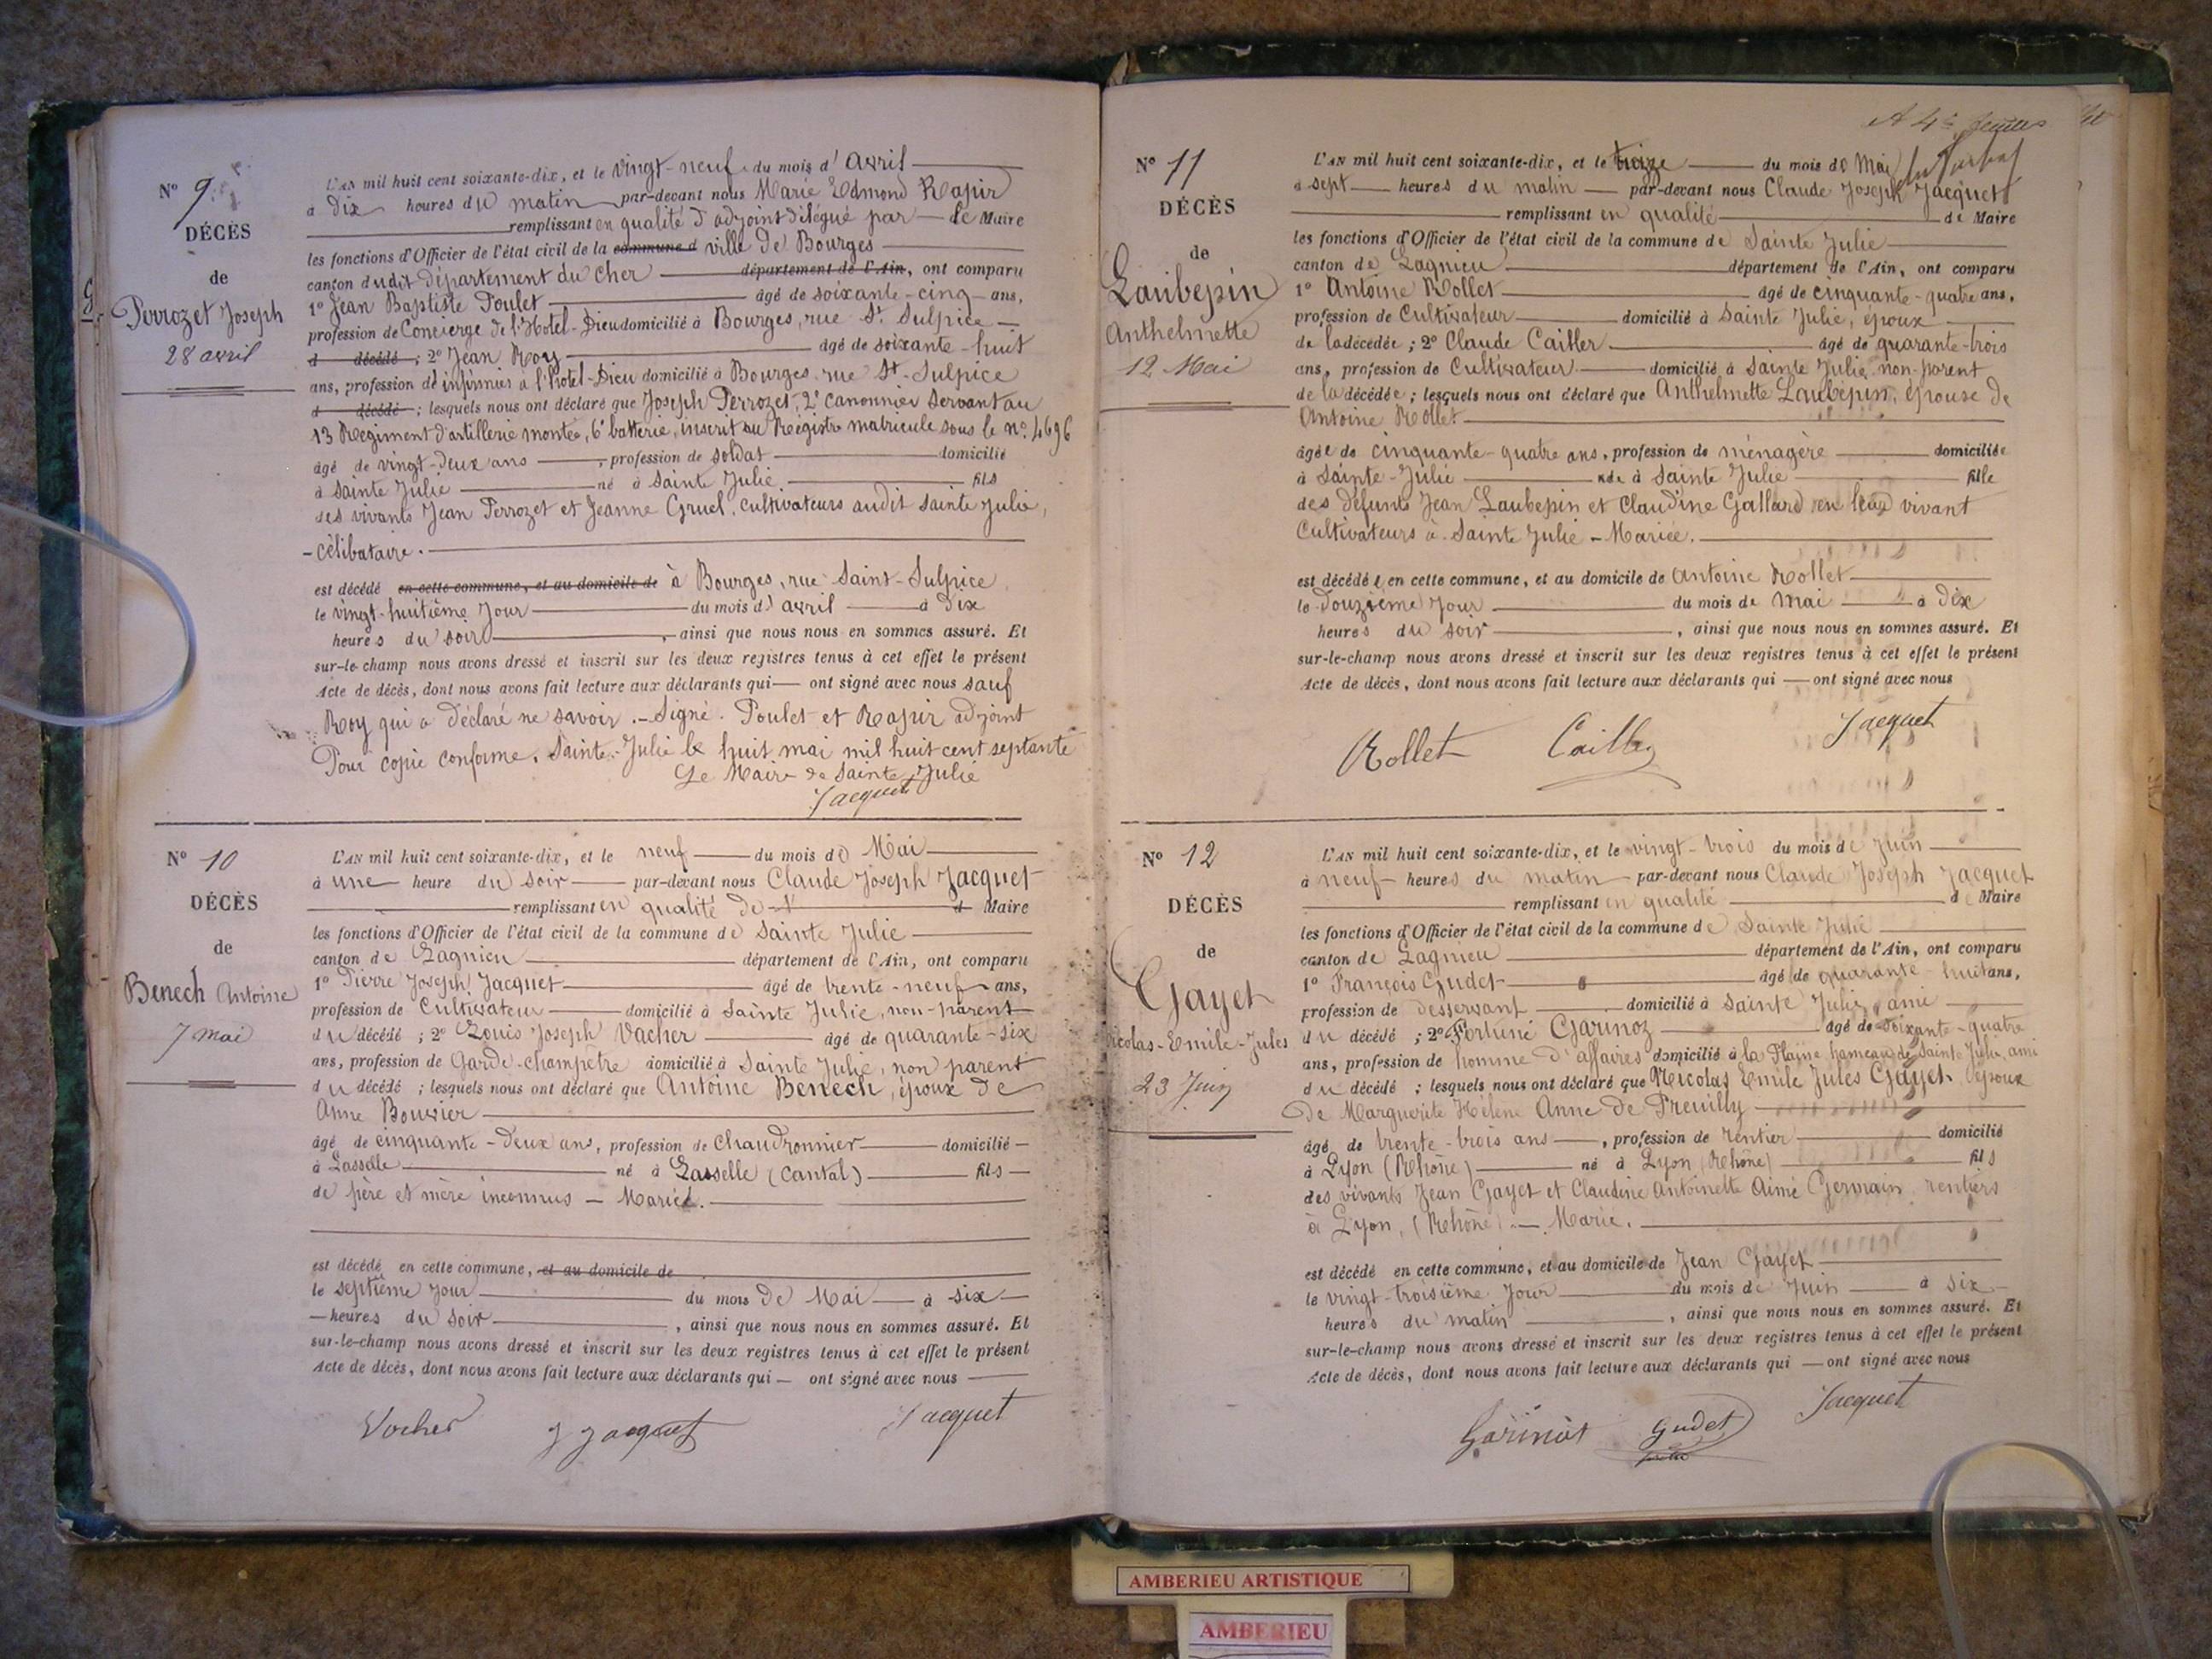 Nº 9
DÉCÈS
de
Perrozet Joseph
28 avril
L'AN mil huit cent soixante-dix, et le vingt-neuf du mois d'avril
à dix heures du matin par-devant nous Marie Edmond Rapin
remplissant en qualité d'adjoint délégué par le Maire
les fonctions d'Officier de l'état civil de la commune d ville de Bourges
canton dudit département du Cher département de l'Ain, ont comparu
1º Jean Baptiste Poulet âgé de soixante-cinq ans,
profession de Concierge de l'Hotel-Dieu domicilié à Bourges, rue St. Sulpice
d décédé ; 2º Jean Roy âgé de soixante-huit
ans, profession de infirmier à l'hotel-Dieu domicilié à Bourges rue St-Sulpice
d décédé ; lesquels nous ont déclaré que Joseph Perrozet, 2e canonnier servant au
13 Régiment d'artillerie montée, 6e batterie, inscrit au Régistre matricule sous le nº 4696
âgé de vingt-deux ans, profession de soldat domicilié
à Sainte Julie né à Sainte Julie fils
des vivants Jean Perrozet et Jeanne Gruel, cultivateurs audit Sainte Julie,
-célibataire.
est décédé en cette commune, et au domicile de à Bourges, rue Saint-Sulpice
le vingt-huitième Jour du mois d'avril à dix
heures du soir, ainsi que nous nous en sommes assuré. Et
sur-le-champ nous avons dressé et inscrit sur les deux registres tenus à cet effet le présent
Acte de décès, dont nous avons fait lecture aux déclarants qui ont signé avec nous sauf
Roy qui a déclaré ne savoir. - Signé. Poulet et Rapin adjoint
Pour copie conforme. Sainte-Julie le huit mai mil huit cent septante
Le Maire de Sainte Julie
Jacquet
Nº 10
DÉCÈS
de
Benech Antoine
7 mai
L'AN mil huit cent soixante-dix, et le neuf du mois de Mai
à une heure du soir par-devant nous Claude Joseph Jacquet
remplissant en qualité de d Maire
les fonctions d'Officier de l'état civil de la commune de Sainte Julie
canton de Lagnieu département de l'Ain, ont comparu
1º Pierre Joseph Jacquet âgé de trente-neuf ans,
profession de Cultivateur domicilié à Sainte Julie, non-parent
du décédé ; 2º Louis Joseph Vacher âgé de quarante-six
ans, profession de Garde-champetre domicilié à Sainte Julie, non parent
du décédé ; lesquels nous ont déclaré que Antoine Benech, époux de
Anne Bouvier
âgé de cinquante-deux ans, profession de Chaudronnier domicilié
à Lasselle né à Lasselle (Cantal) fils
de père et mère inconnus - Marié.
est décédé en cette commune, et au domicile de
le septième Jour du mois de Mai à six
heures du soir, ainsi que nous nous en sommes assuré. Et
sur-le-champ nous avons dressé et inscrit sur les deux registres tenus à cet effet le présent
Acte de décès, dont nous avons fait lecture aux déclarants qui ont signé avec nous
Vacher J Jacquet Jacquet
Nº 11
DÉCÈS
de
Laubepin
Anthelmette
12 Mai
L'AN mil huit cent soixante-dix, et le treize du mois de Mai
à sept heures du matin par-devant nous Claude Joseph Jacquet
remplissant en qualité de Maire
les fonctions d'Officier de l'état civil de la commune de Sainte Julie
canton de Lagnieu département de l'Ain, ont comparu
1º Antoine Rollet âgé de cinquante-quatre ans,
profession de Cultivateur domicilié à Sainte Julie, époux
de la décédée ; 2º Claude Cailler âgé de quarante-trois
ans, profession de Cultivateur domicilié à Sainte Julie non-parent
de la décédée ; lesquels nous ont déclaré que Anthelmette Laubepin, épouse de
Antoine Rollet
âgée de cinquante-quatre ans, profession de ménagère domiciliée
à Sainte-Julie née à Sainte Julie fille
des défunts Jean Laubepin et Claudine Gallard en leur vivant
Cultivateurs à Sainte Julie - Mariée.
est décédée en cette commune, et au domicile de Antoine Rollet
le Douzième Jour du mois de Mai à dix
heures du soir, ainsi que nous nous en sommes assuré. Et
sur-le-champ nous avons dressé et inscrit sur les deux registres tenus à cet effet le présent
Acte de décès, dont nous avons fait lecture aux déclarants qui ont signé avec nous
Rollet Cailler Jacquet
Nº 12
DÉCÈS
de
Gayet
Nicolas-Emile-Jules
23 Juin
L'AN mil huit cent soixante-dix, et le vingt-trois du mois de Juin
à neuf heures du matin par-devant nous Claude Joseph Jacquet
remplissant en qualité de Maire
les fonctions d'Officier de l'état civil de la commune de Sainte Julie
canton de Lagnieu département de l'Ain, ont comparu
1º François Gudet âgé de quarante-huit ans,
profession de desservant domicilié à Sainte Julie, ami
du décédé ; 2º Fortuné Garinoz âgé de soixante-quatre
ans, profession de homme d'affaires domicilié à la Plaine hameau de Sainte Julie, ami
du décédé ; lesquels nous ont déclaré que Nicolas Emile Jules Gayet, époux
de Marguerite Hélène Anne de Preuilly
âgé de trente-trois ans, profession de rentier domicilié
à Lyon (Rhône) né à Lyon (Rhône) fils
des vivants Jean Gayet et Claudine Antoinette Aimé Germain rentiers
à Lyon, (Rhône). - Marié.
est décédé en cette commune, et au domicile de Jean Gayet
le vingt-troisième Jour du mois de Juin à six
heures du matin, ainsi que nous nous en sommes assuré. Et
sur-le-champ nous avons dressé et inscrit sur les deux registres tenus à cet effet le présent
Acte de décès, dont nous avons fait lecture aux déclarants qui ont signé avec nous
Garinot Gudet Jacquet
AMBERIEU ARTISTIQUE
AMBERIEU